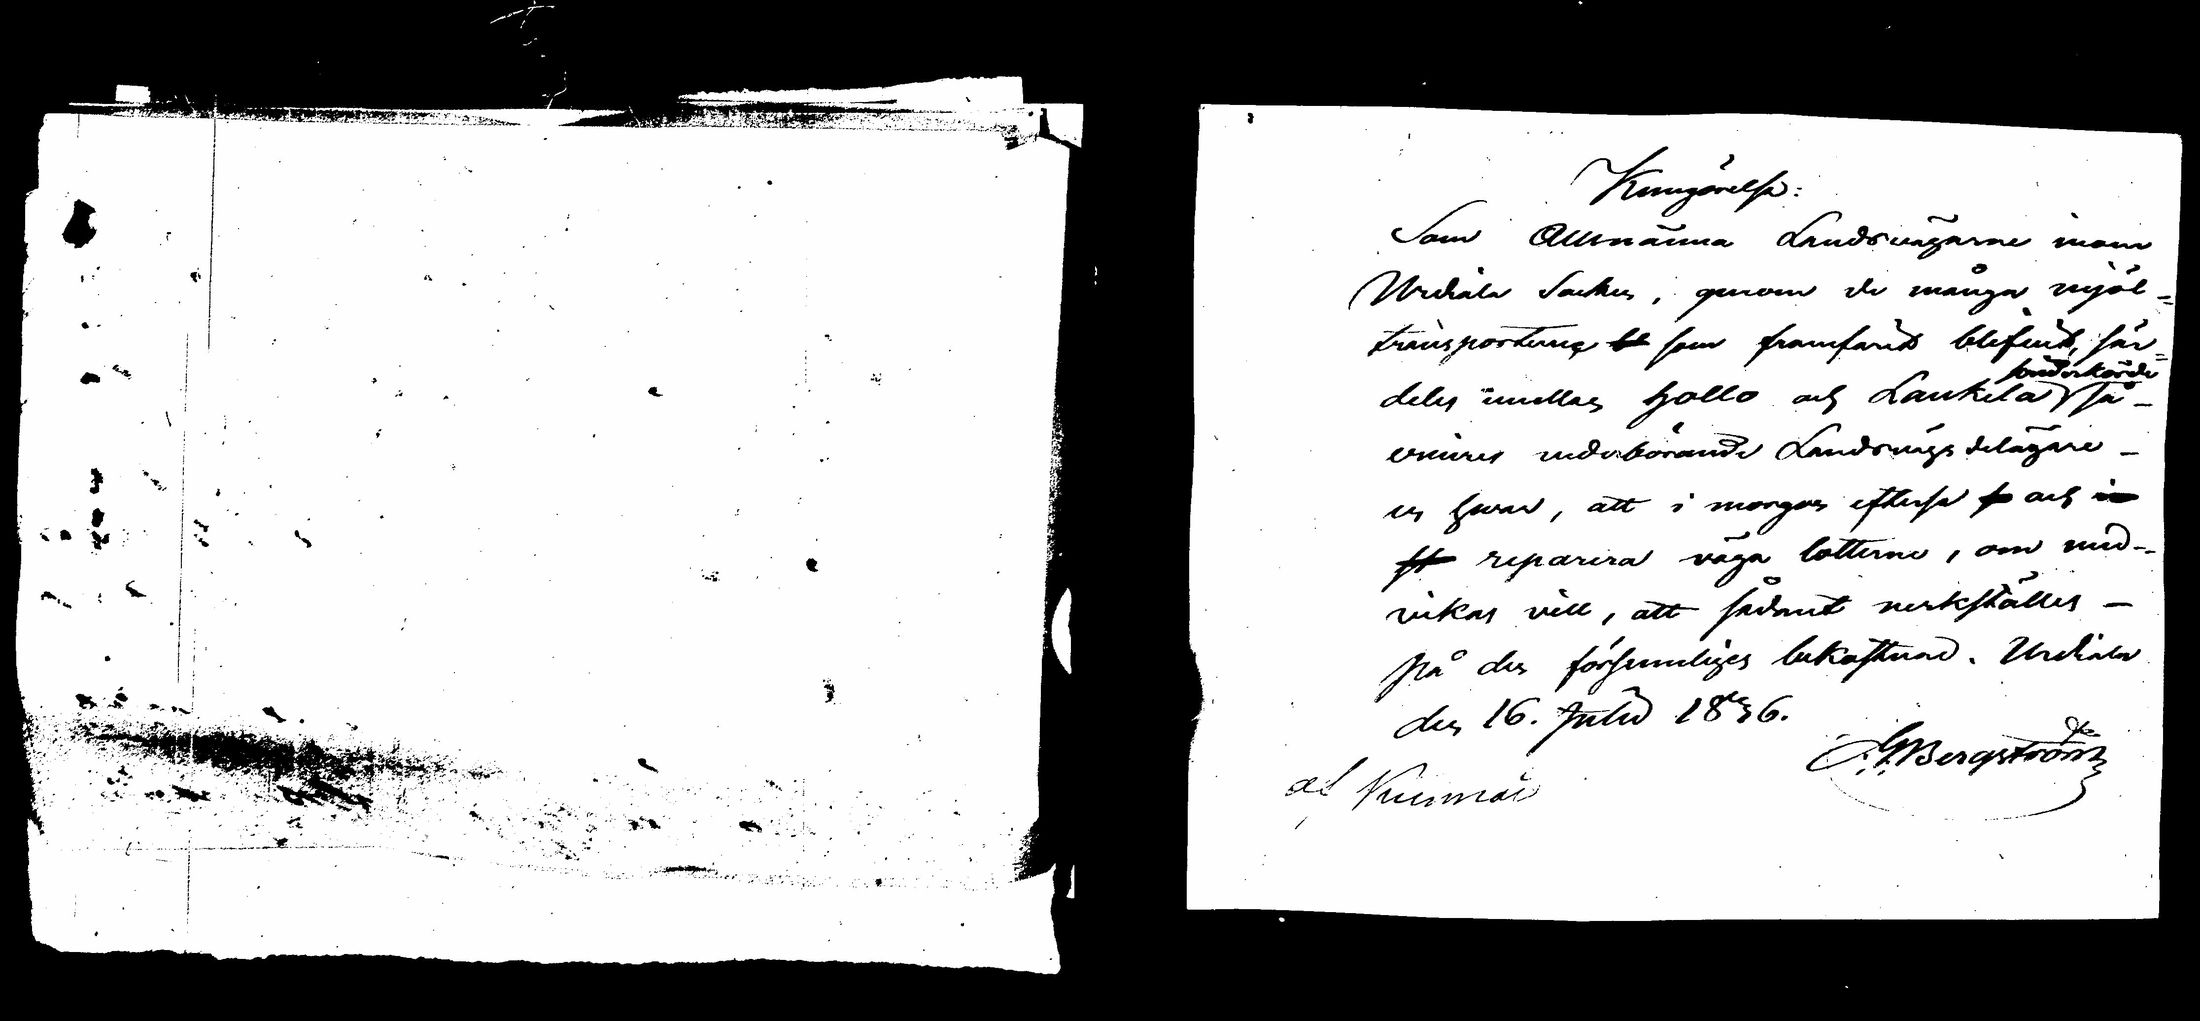 Kungörelse:
Som Allmänna Landsvägarne inom
Urdiala Socken, genom de många mjöl=
transporterne som framfarit blifvit, sär=
deles emellan Hollo och Laukela sönderkörde så-
ännes vederbörande Landsvägs delägare-
en hvar, att i morgon efterse och
reparera väga lotterne, om und-
vikas vill, att sådant verkställes -
på den försumliges bekostnad. Urdiala
den 16. Julii 1836.
Bergström
af Nuu